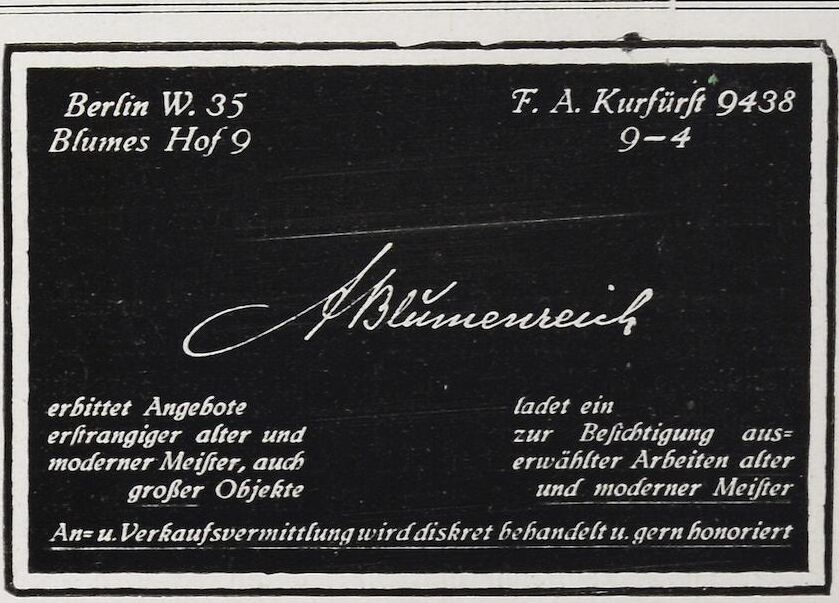 Berlin W. 35
Blumes Hof 9
F. A. Kurfürſt 9438
9–4
A Blumenreich
erbittet Angebote
erſtrangiger alter und
moderner Meiſter, auch
großer Objekte
ladet ein
zur Beſichtigung aus=
erwählter Arbeiten alter
und moderner Meiſter
An= u. Verkaufsvermittlung wird diskret behandelt u. gern honoriert